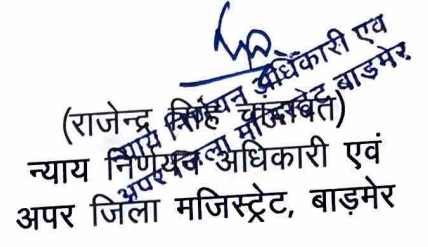 न्याय निर्णयन अधिकारी एवं
अपर जिला मजिस्ट्रेट बाडमेर
(राजेन्द्र सिंह चांदावत)
न्याय निर्णयन अधिकारी एवं
अपर जिला मजिस्ट्रेट, बाड़मेर